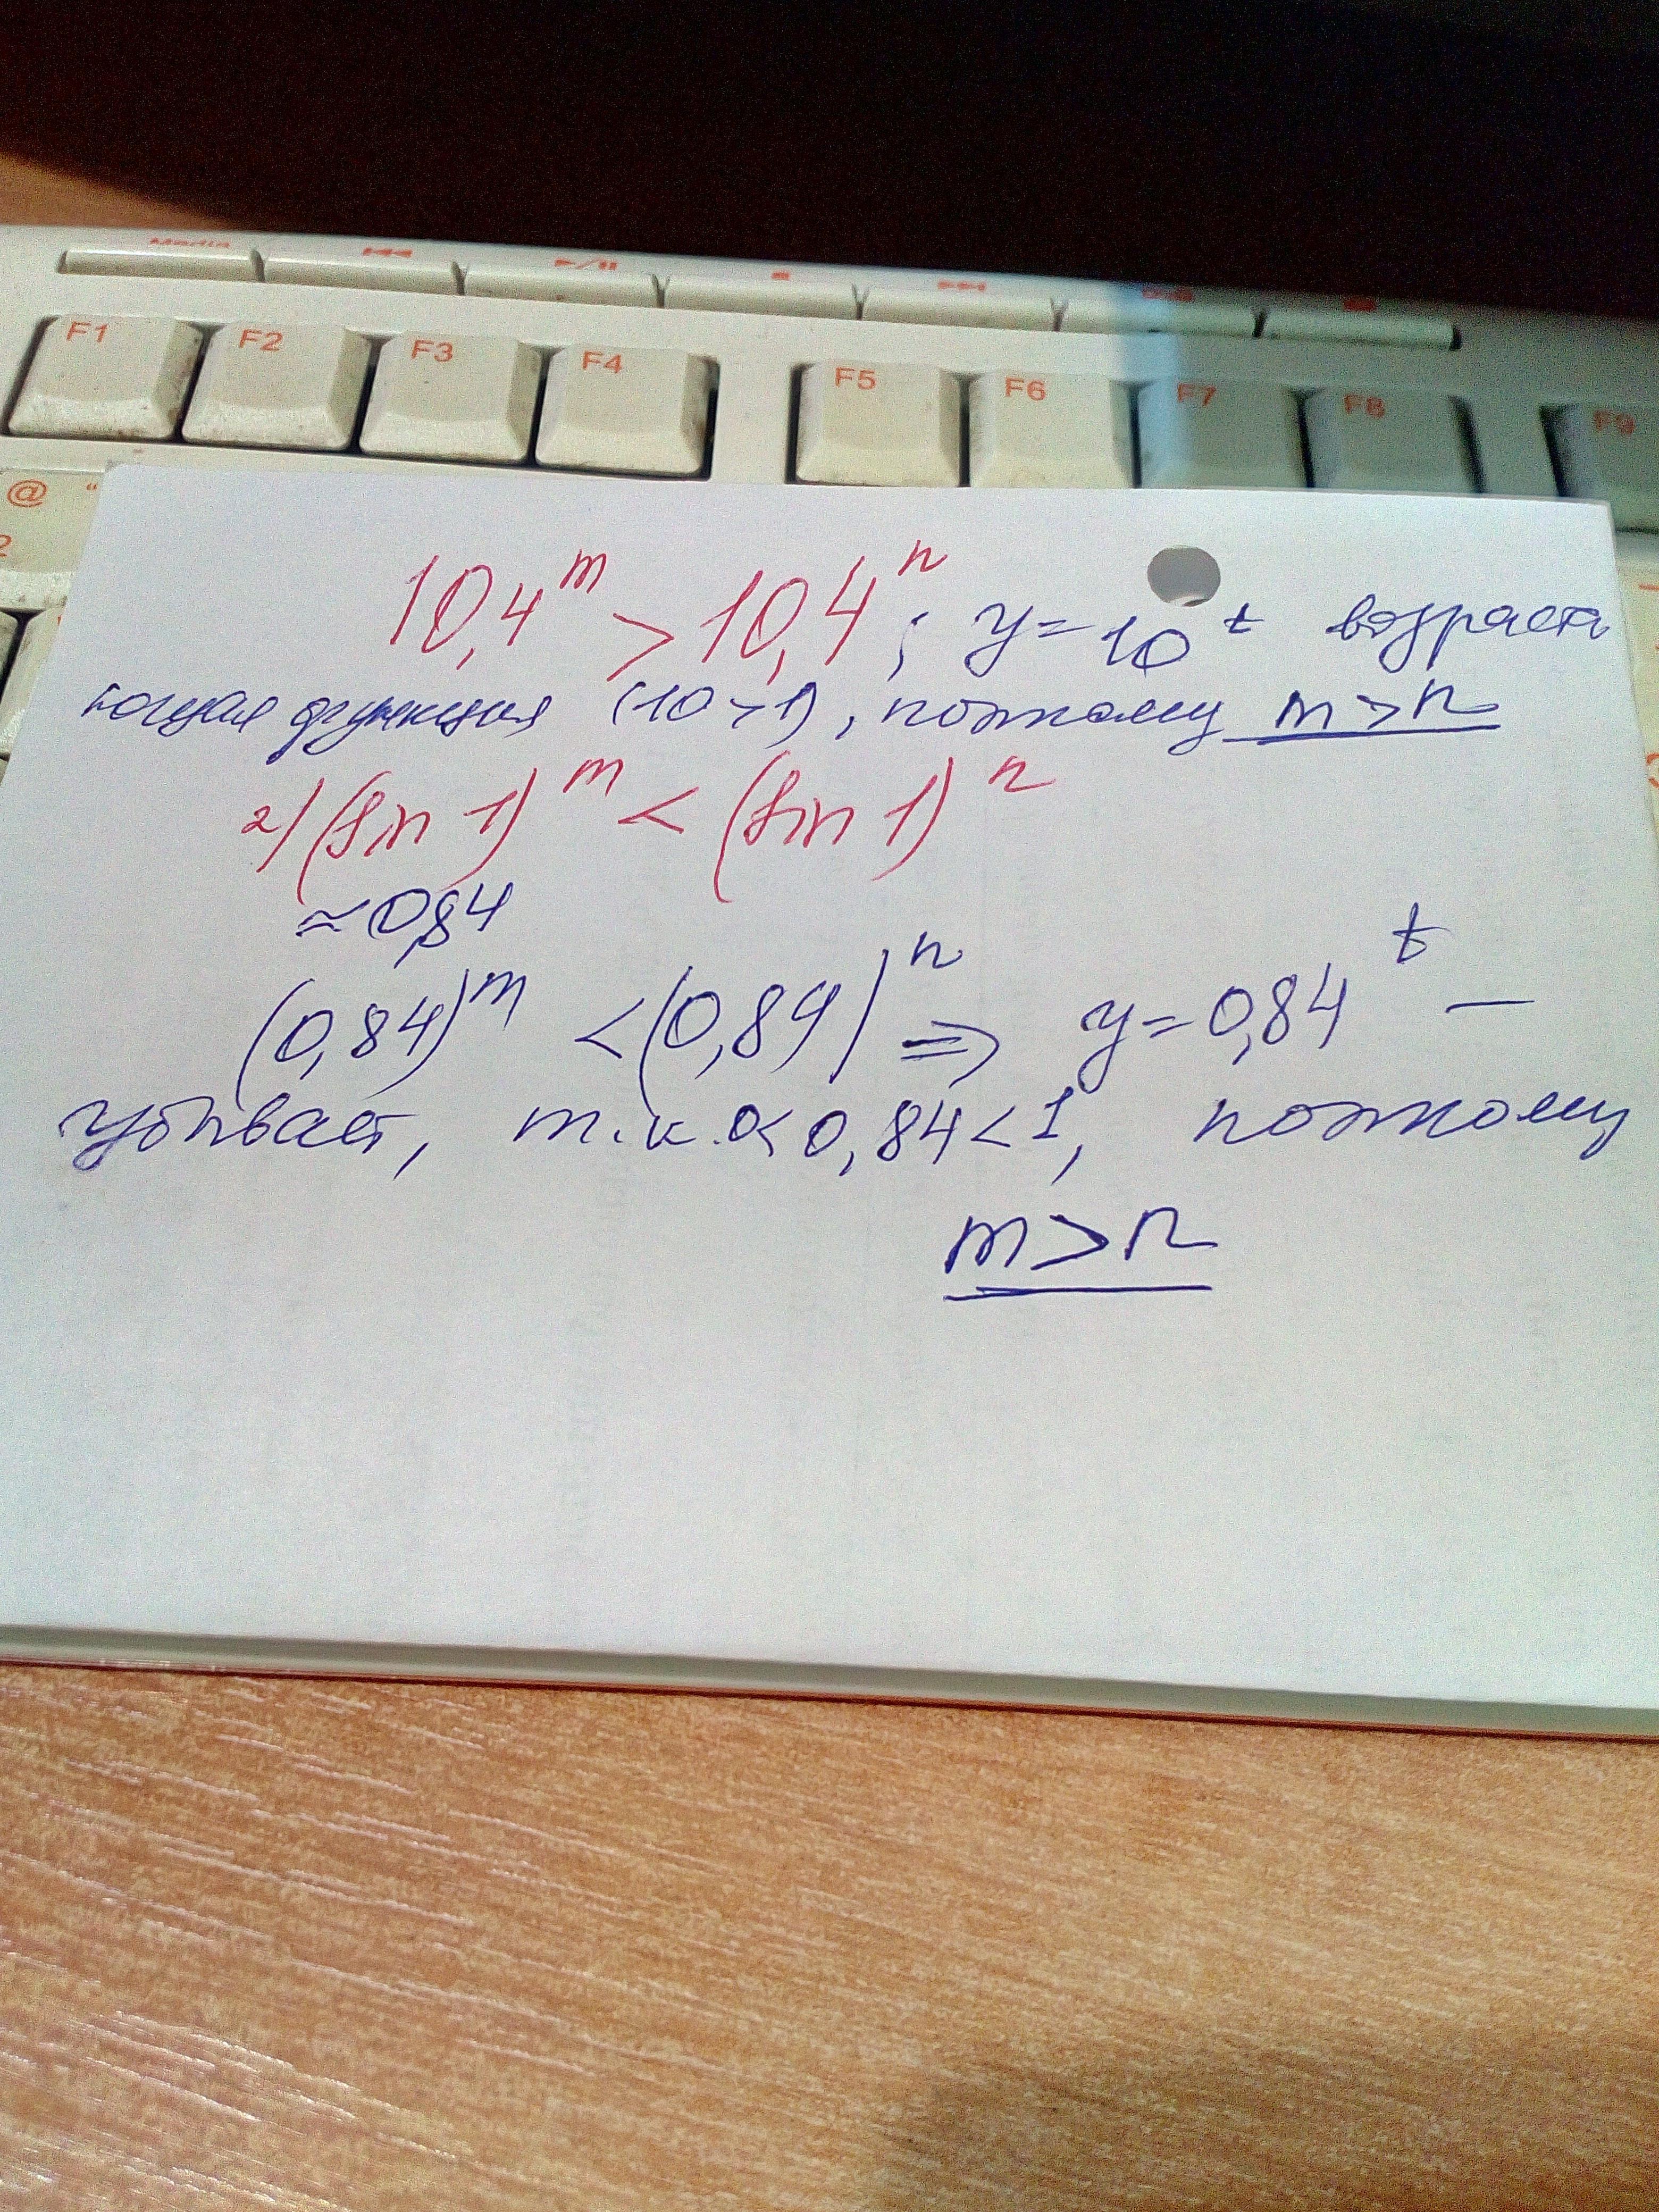 Media
F1 F2 F3 F4 F5 F6 F7 F8 F9
@ "
2
10,4^m > 10,4^n ; y=10^t возраста
ющая функция (10>1), поэтому m>n
2) (sin 1)^m < (sin 1)^n
≈0,84
(0,84)^m < (0,84)^n ⇒ y=0,84^t —
убывает, т.к. 0<0,84<1, поэтому
m>n